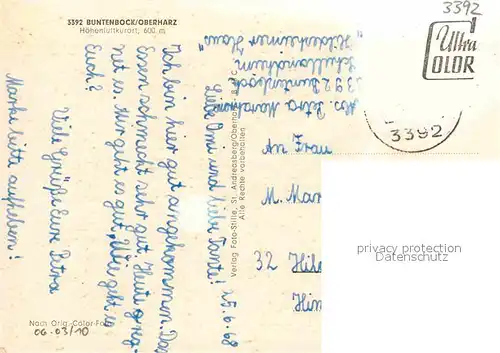 3392 BUNTENBOCK/OBERHARZ
Höhenluftkurort, 600 m
3392
Ultra
COLOR
3392
Abs. Petra
3392 Buntenbock
Schullandheim
"Hildesheimer Haus"
25.6.68
Liebe Omi und liebe Tante!
Ich bin hier gut angekommen. Das
Essen schmeckt sehr gut. Heute regnet es. Mir geht es gut. Wie geht es
Euch?
Viele Grüße Eure Petra
Marke bitte aufheben!
Verlag Foto-Stille, St. Andreasberg/Oberharz
Alle Rechte vorbehalten
An Frau
M.
32
privacy protection
Datenschutz
Nach Orig.-Color-Foto
06-03/10